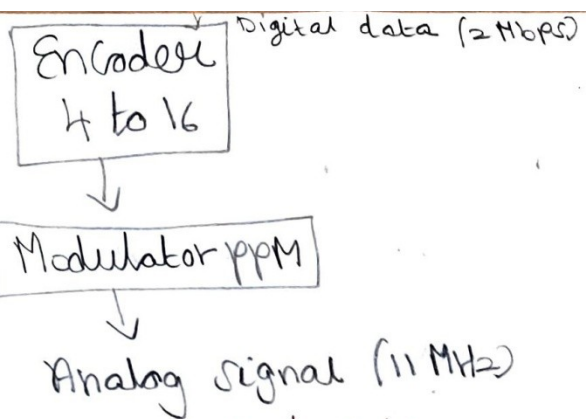 Digital data (2 Mbps)
Encoder
4 to 16
Modulator PPM
Analog signal (11 MHz)